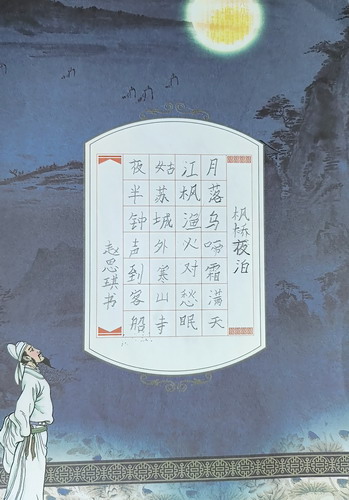 枫桥夜泊
月落乌啼霜满天
江枫渔火对愁眠
姑苏城外寒山寺
夜半钟声到客船
赵思琪书